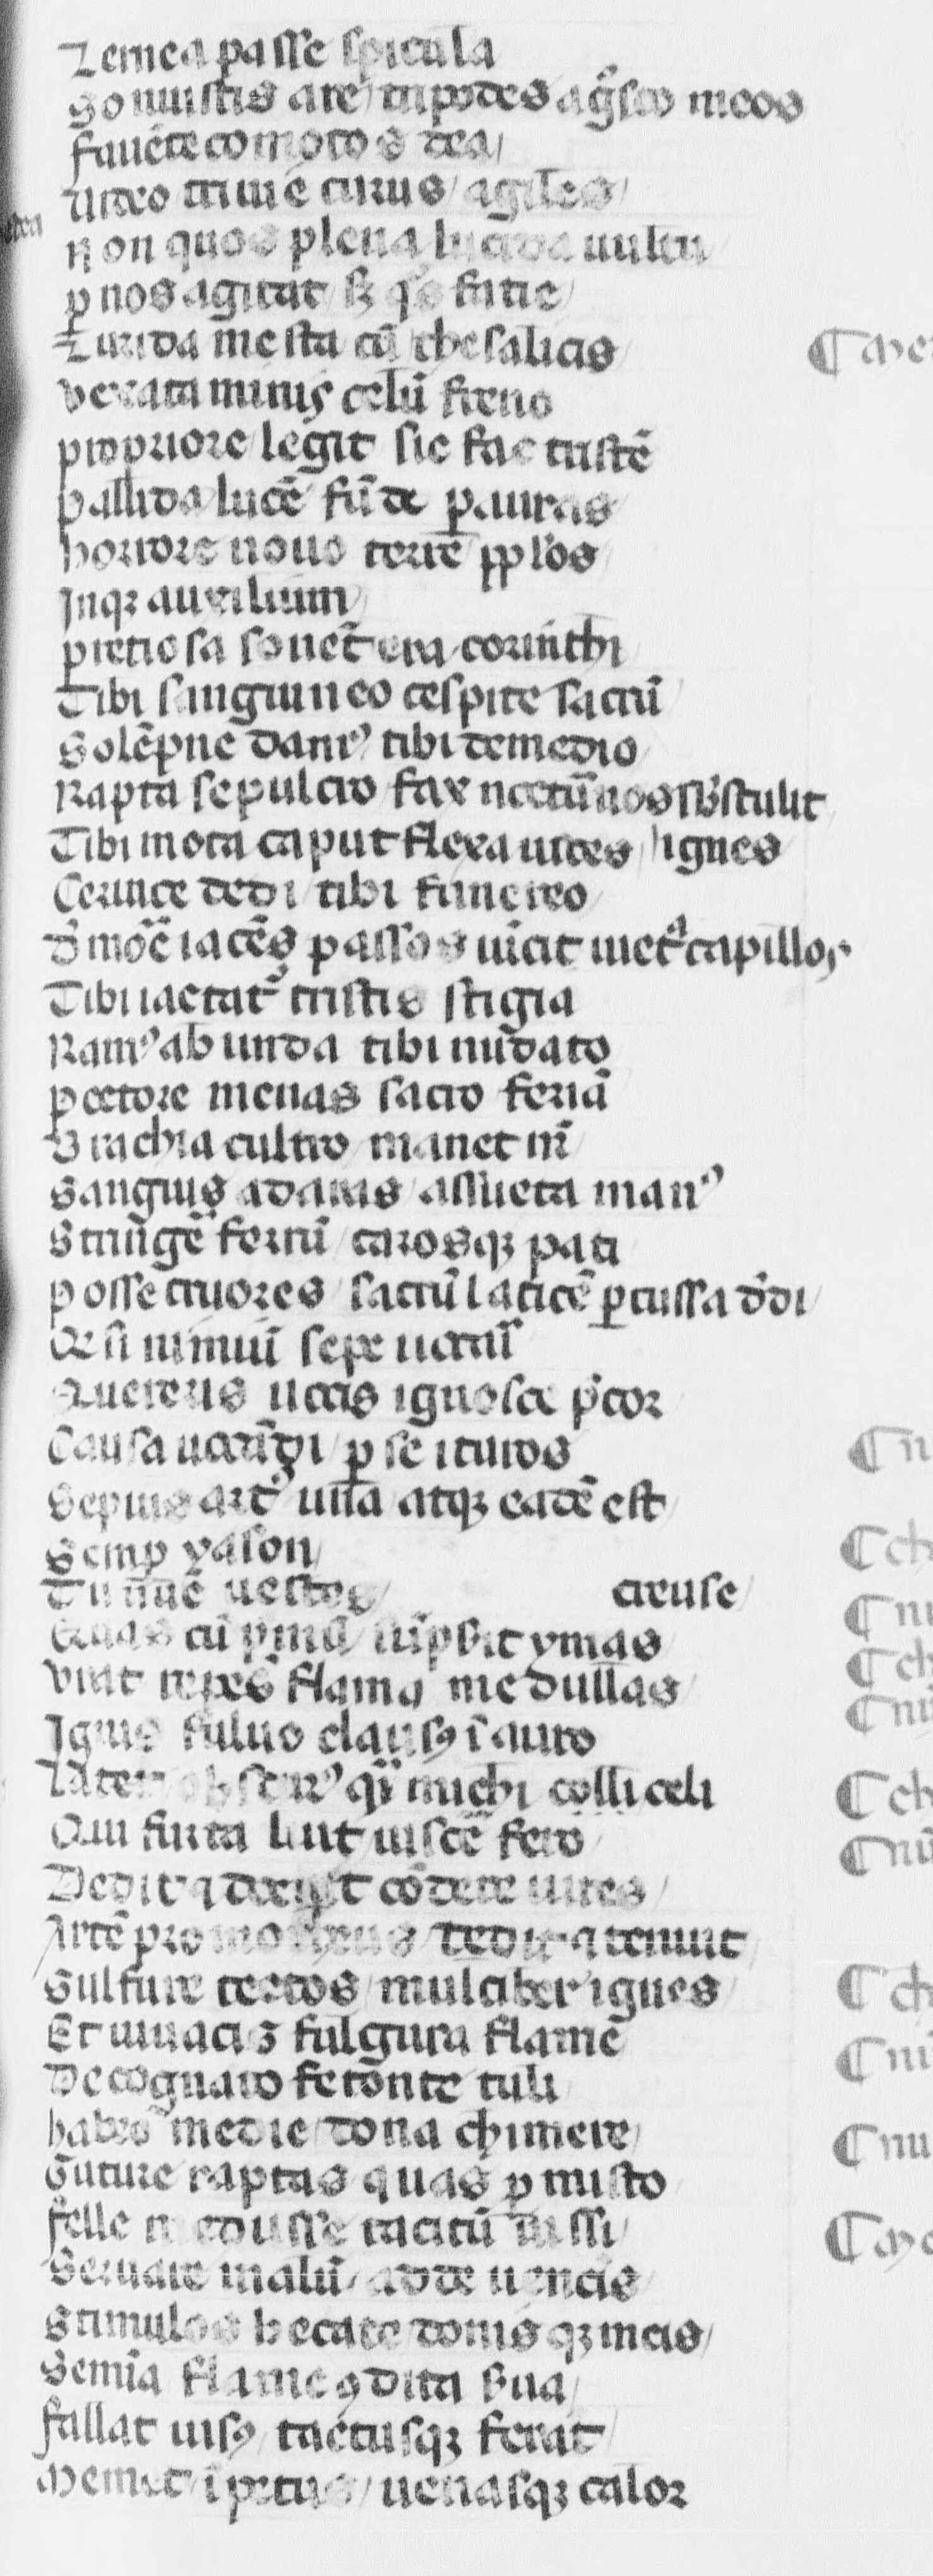 Zemea passe spicula
Sonuistis are tripodes ag̃sco meos
fauẽte comotos dea
Uideo triuie currus agiles
Non quos plena lucida uultu
ꝑ nos agitat sꝫ qͦs facie
Lurida mesta cũ thesalicis
vexata minis celũ freno
propriore legit sic fac tristẽ
pallida lucẽ fũde ꝑ auras
horrore nouo terre pp̃los
Inqꝫ auxilium
pretiosa sonẽt era corinthi
Tibi sanguineo cespite sacrũ
Solẽpne damꝰ tibi de medio
Rapta sepulcro fax nocturnos sb̾stulit
Tibi mota caput flexa uoces ignes
Ceruice dedi tibi funereo
D̾ mõe iacẽs passos uĩcit uictᵃ capillos
Tibi iactatᷣ tristis stigia
Ramꝰ ab unda tibi nũdato
pectore menas sacro feriã
Brachia cultro manet nr̃
Sanguis ad aras assueta manꝰ
Stringẽ ferrũ carosqꝫ pati
posse cruores sacrũ laticẽ ꝑcussa d̾di
Qr si nimiũ sepe uocarĩ
Quereris uocis ignosce p̾cor
Causa uocãdi ꝑse ituros
Sepius artꝰ una atqꝫ eadẽ est
Semꝑ yason
Tu nũc uestes creuse
Quas cũ pmũ sũpsit ymas
Urat repẽs flama medullas
Ignis fuluo clausꝰ ĩ auro
Latet obscurꝰ quẽ michi colli celi
Qui furta luit uiscẽ feto
Dedit ⁊ docuit cõdere uires
Artẽ promotheus dedit ⁊ tenuit
Sulfure tectos mulciber ignes
Et uiuacis fulgura flame
De cognato fetonte tuli
habeo medie dona chimere
Guture raptas quas ꝑmisto
felle medusse tacitũ iussi
Seruare malũ adde uenẽis
Stimulos hecate donisqꝫ meis
Semĩa flame ꝯdita s̾ua
fallat uisꝰ tactusqꝫ ferat
Memet ĩ pectus uenasqꝫ calor